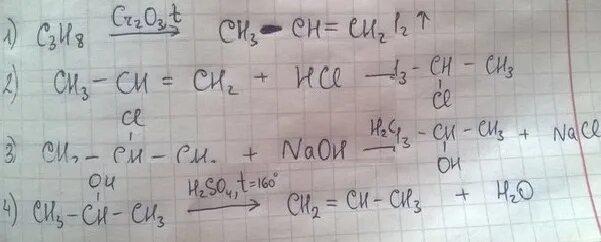 1) C3H8 Cr2O3, t → CH3 – CH = CH2 2 ↑
2) CH3 – CH = CH2 + HCl → 3 – CH – CH3
Cl
Cl
3) – CH – + NaOH → H2 3 – CH – CH3 + NaCl
OH
OH
4) CH3 – CH – CH3 H2SO4, t=160° → CH2 = CH – CH3 + H2O